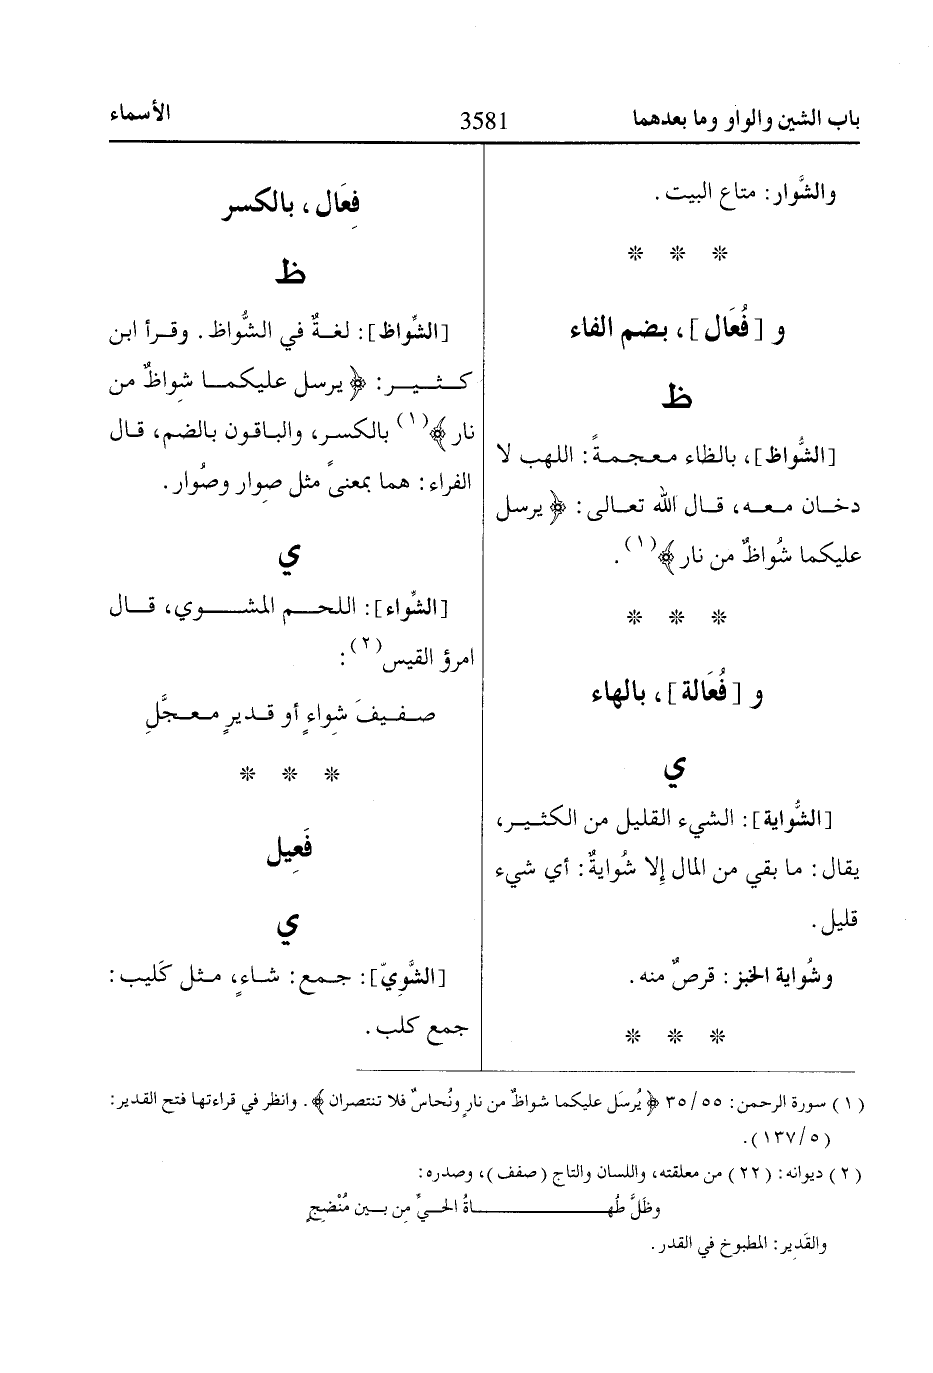 باب الشين والواو وما بعدهما
3581
الأسماء
والشَّوار: متاع البيت.
* * *
و [فُعَال]، بضم الفاء
ظ
[الشُّواظ]، بالظاء معجمةً: اللهب لا
دخان معه، قال الله تعالى: ﴿يرسل
عليكما شُواظٌ من نار﴾(١).
* * *
و [فُعَالة]، بالهاء
ي
[الشُّواية]: الشيء القليل من الكثير،
يقال: ما بقي من المال إِلا شُوايةٌ: أي شيء
قليل.
وشُواية الخبز: قرصٌ منه.
* * *
فِعَال، بالكسر
ظ
[الشِّواظ]: لغةٌ في الشُّواظ. وقرأ ابن
كثير: ﴿يرسل عليكما شِواظٌ من
نار﴾(١) بالكسر، والباقون بالضم، قال
الفراء: هما بمعنىً مثل صِوار وصُوار.
ي
[الشِّواء]: اللحم المشوي، قال
امرؤ القيس(٢):
صفيفَ شِواءٍ أو قديرٍ معجَّلِ
* * *
فَعِيل
ي
[الشَّوِيّ]: جمع: شاءٍ، مثل كَليب:
جمع كلب.
(١) سورة الرحمن: ٥٥/ ٣٥ ﴿يُرسَل عليكما شواظٌ من نارٍ ونُحاسٌ فلا تنتصران﴾. وانظر في قراءتها فتح القدير:
(٥/ ١٣٧).
(٢) ديوانه: (٢٢) من معلقته، واللسان والتاج (صفف)، وصدره:
وظَلَّ طُهـاةُ الحيِّ مِن بـين مُنْضِجٍ
والقَدِير: المطبوخ في القدر.